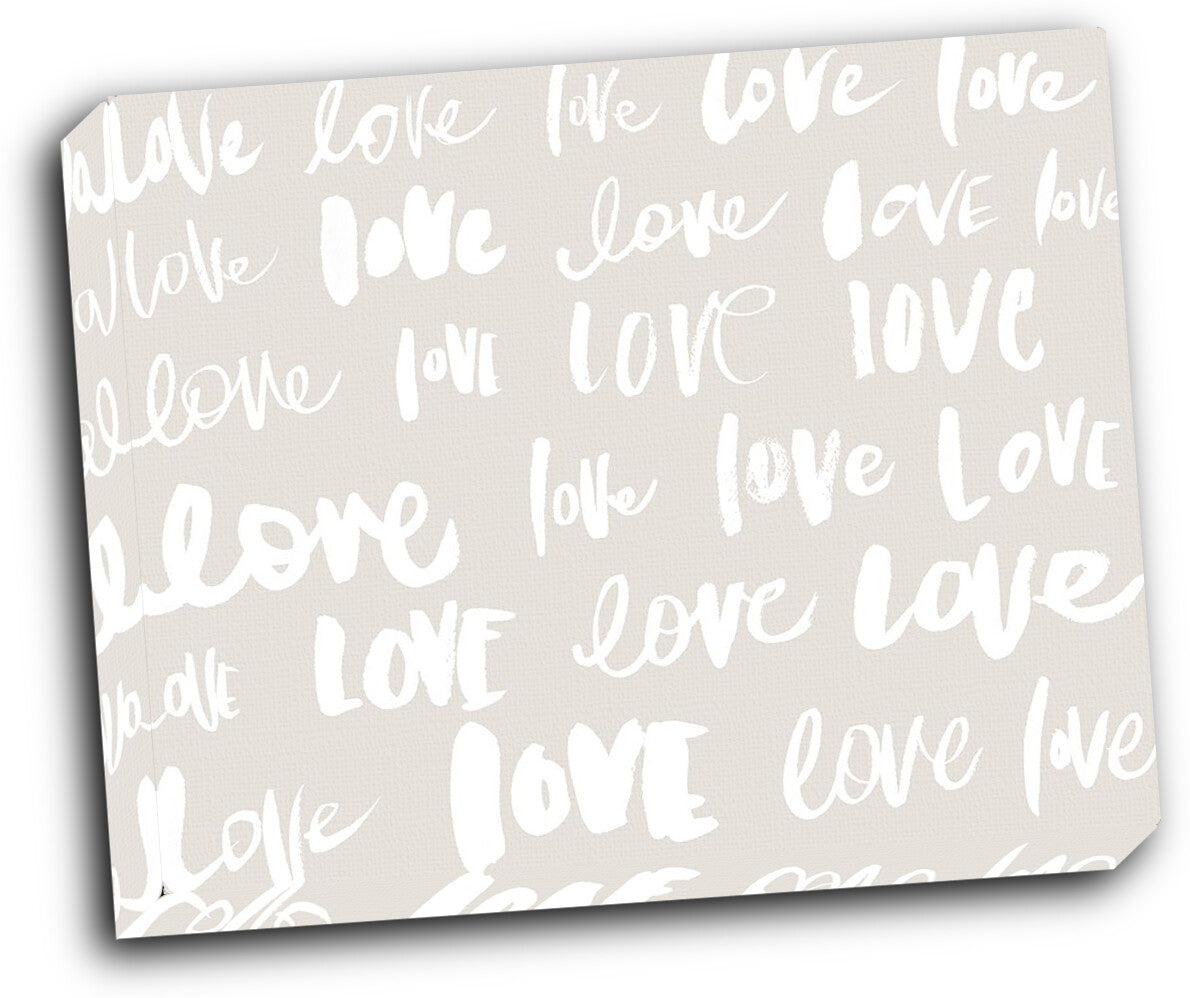 love love love love love
love love love love love
love love love love
love love love love
LOVE love love
love love love love